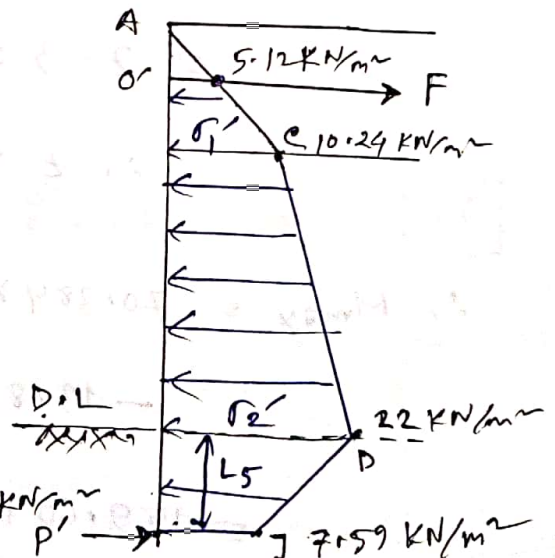 A
5.12 KN/m²
O'
F
σ₁'
C 10.24 KN/m²
D.L
σ₂'
22 KN/m²
D
L5
KN/m²
P'
J 7.59 KN/m²